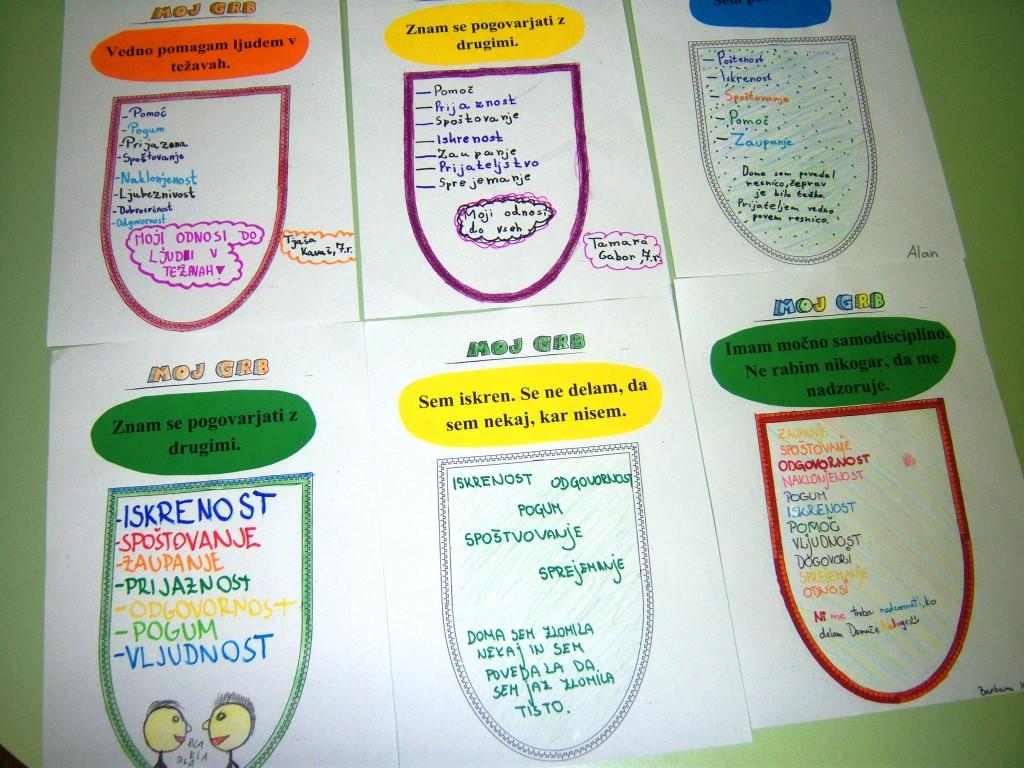 MOJ GRB
Vedno pomagam ljudem v
težavah.
- Pomoč
- Pogum
- Prijazna
- Spoštovanje
- Naklonjenost
- Ljubeznivost
- Dobrosrčnost
- Odgovornost
MOJI ODNOSI DO
LJUDI V
TEŽAVAH
Tjaša
7.r.
Znam se pogovarjati z
drugimi.
— Pomoč
— Prijaznost
— Spoštovanje
— Iskrenost
— Zaupanje
— Prijateljstvo
— Sprejemanje
Moji odnosi
do vseh
Tamara
Gabor 7.r.
Sem
- Poštenost
- Iskrenost
- Spoštovanje
- Pomoč
- Zaupanje
Doma sem povedal
resnico, čeprav
je bilo težko.
Prijateljem vedno
povem resnico.
Alan
MOJ GRB
Znam se pogovarjati z
drugimi.
-ISKRENOST
-SPOŠTOVANJE
-ZAUPANJE
-PRIJAZNOST
-ODGOVORNOST
-POGUM
-VLJUDNOST
BLA
BLA
BLA
MOJ GRB
Sem iskren. Se ne delam, da
sem nekaj, kar nisem.
ISKRENOST ODGOVORNOST
POGUM
SPOŠTVOVANJE
SPREJEMANJE
DOMA SEM ZLOMILA
NEKAJ IN SEM
POVEDALA DA
SEM JAZ ZLOMILA
TISTO.
MOJ GRB
Imam močno samodisciplino.
Ne rabim nikogar, da me
nadzoruje.
ZAUPANJE
SPOŠTOVANJE
ODGOVORNOST
NAKLONJENOST
POGUM
ISKRENOST
POMOČ
VLJUDNOST
DOGOVORI
SPREJEMANJE
ODNOSI
Ni me treba nadzorovati, ko
delam Domače naloge
Barbara